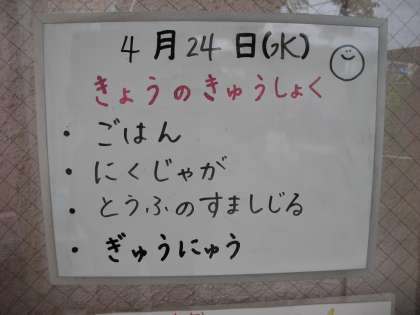 4月24日(水)
きょうのきゅうしょく
・ごはん
・にくじゃが
・とうふのすましじる
・ぎゅうにゅう